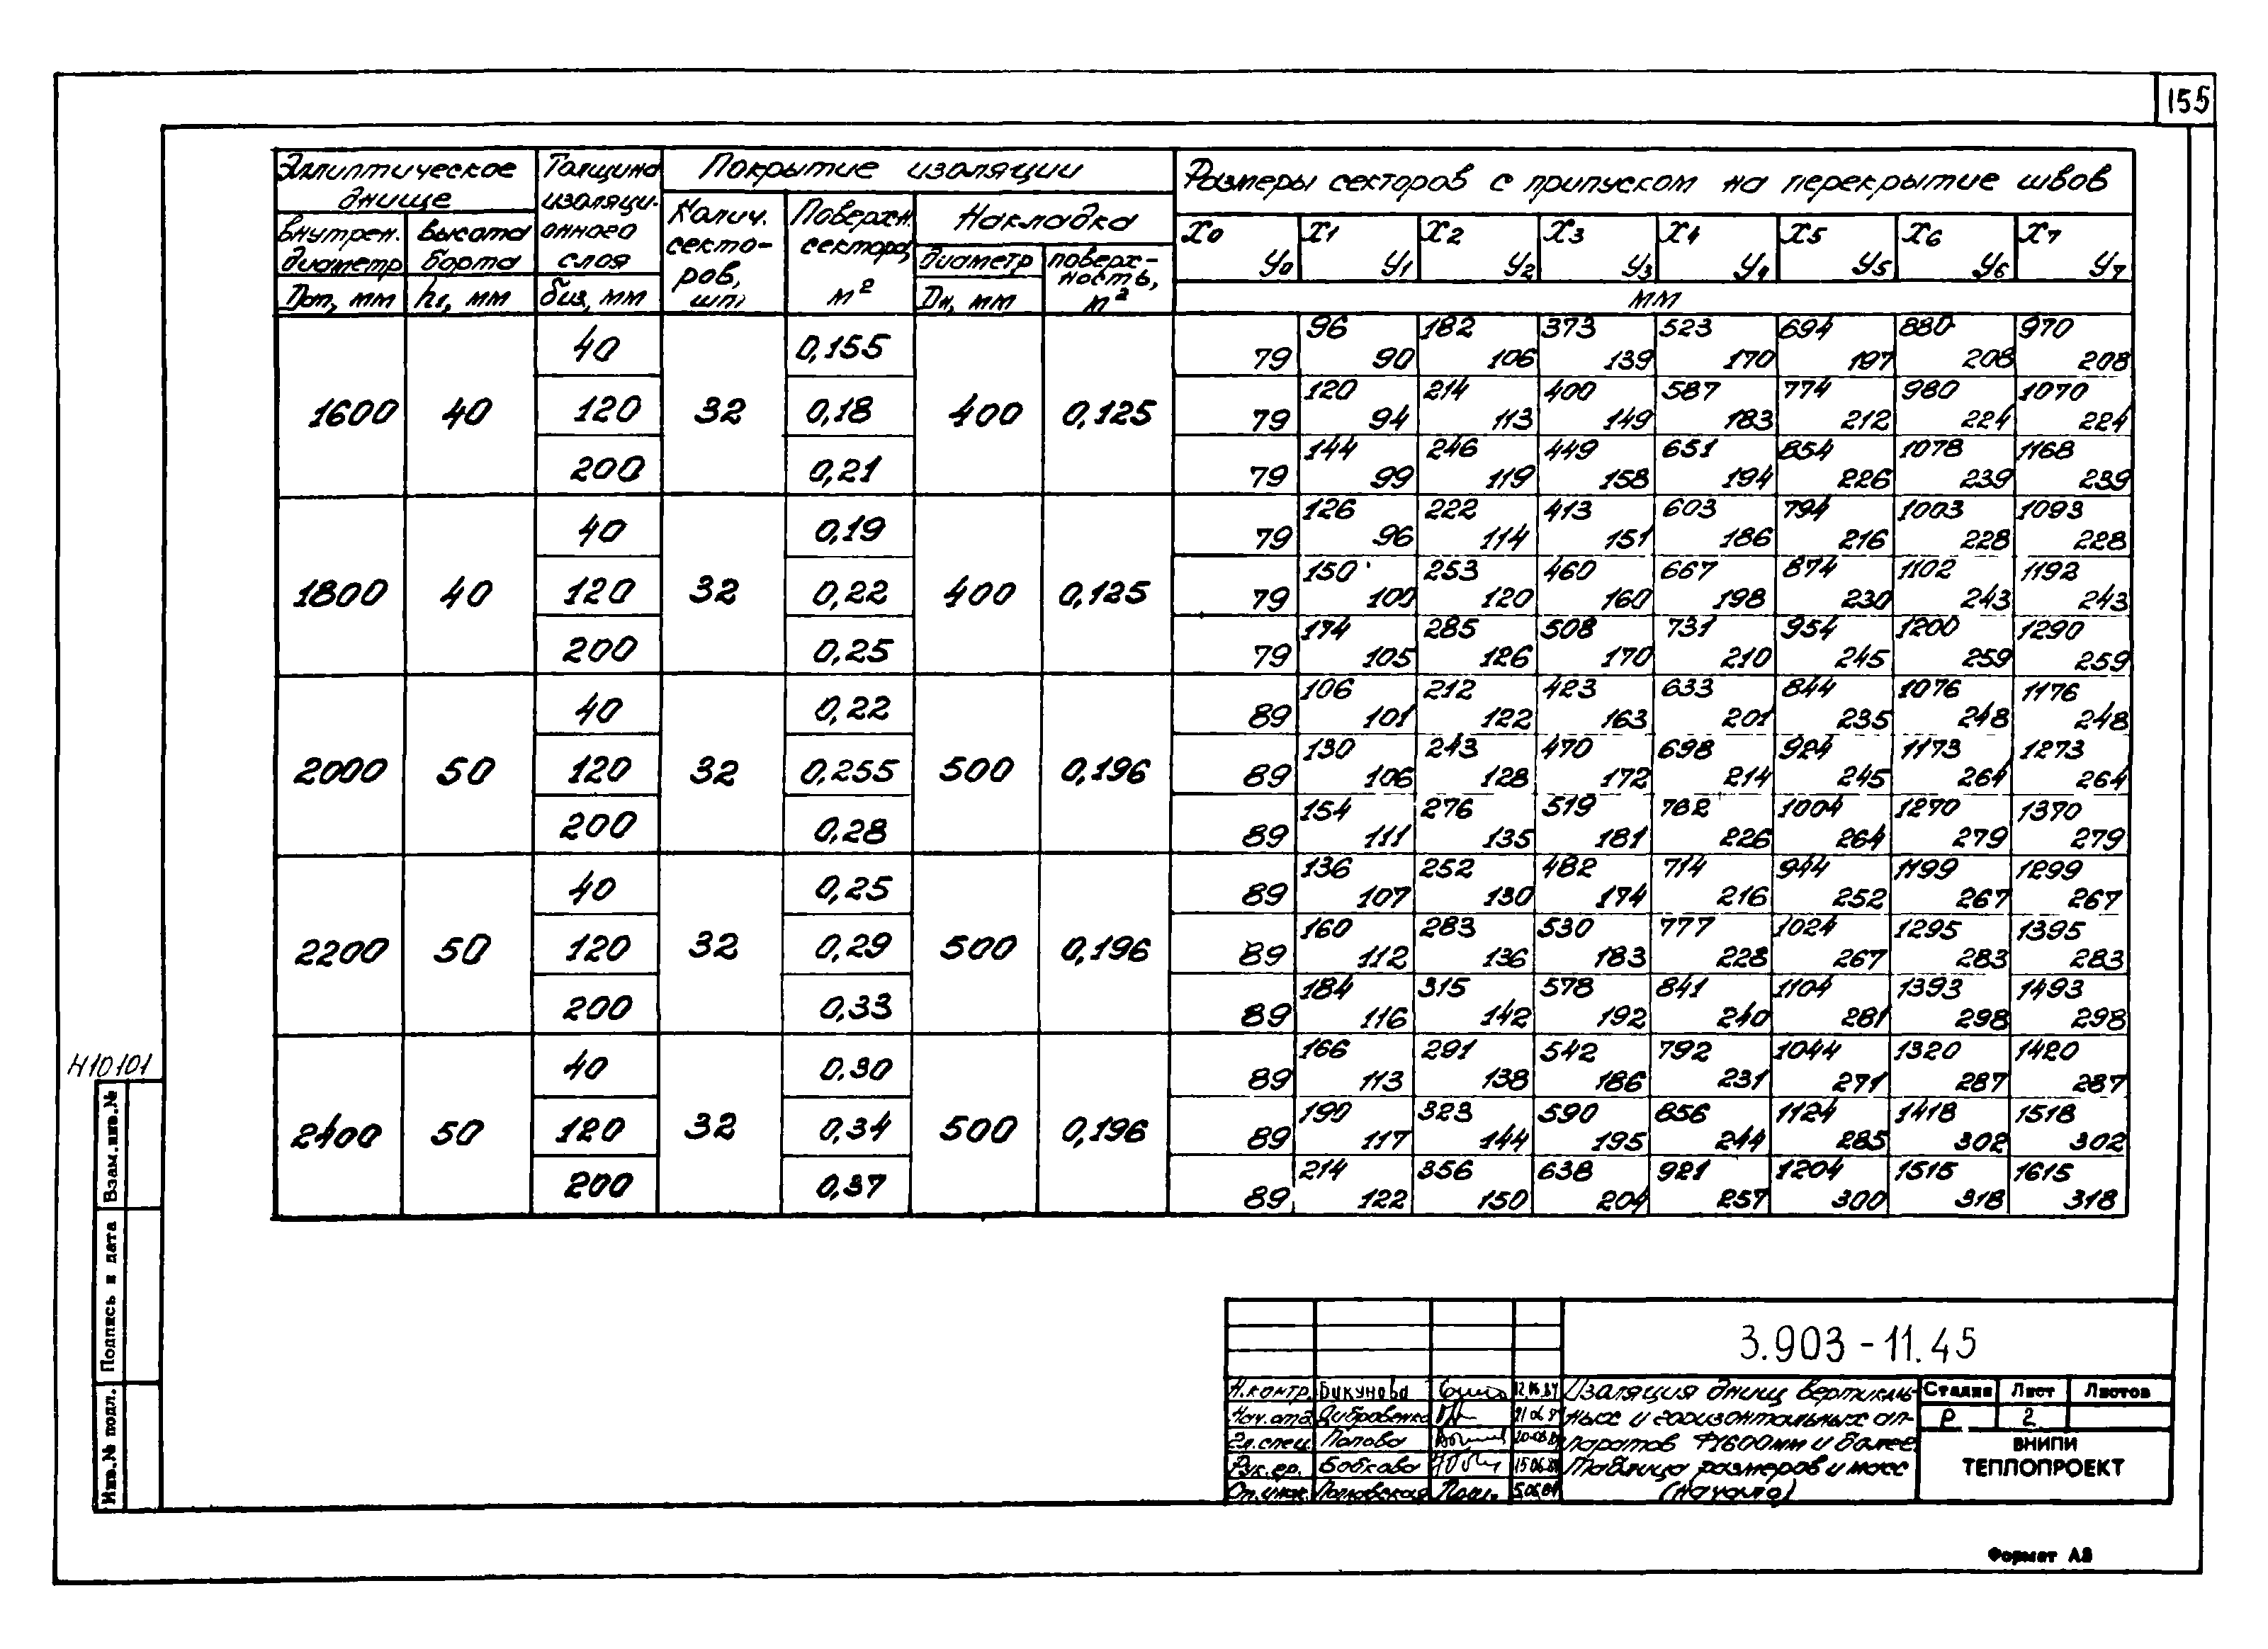 155
Эллиптическое днище
Толщина изоляционного слоя
Покрытие изоляции
Размеры секторов с припуском на перекрытие швов
внутрен. диаметр
высота борта
Колич. секторов, шт.
Поверхн. сектора, м²
Накладка
диаметр
поверхность, м²
Dоп, мм h₁, мм биз, мм Dн, мм
X0 X1 X2 X3 X4 X5 X6 X7
У0 У1 У2 У3 У4 У5 У6 У7
мм
96 182 373 523 694 880 970
40 0,155
79 90 106 139 170 197 208 208
120 214 400 587 774 980 1070
1600 40 120 32 0,18 400 0,125
79 94 113 149 183 212 224 224
144 246 449 651 854 1078 1168
200 0,21
79 99 119 158 194 226 239 239
126 222 413 603 794 1003 1093
40 0,19
79 96 114 151 186 216 228 228
150 253 460 667 874 1102 1192
1800 40 120 32 0,22 400 0,125
79 100 120 160 198 230 243 243
174 285 508 731 954 1200 1290
200 0,25
79 105 126 170 210 245 259 259
106 212 423 633 844 1076 1176
40 0,22
89 101 122 163 201 235 248 248
130 243 470 698 924 1173 1273
2000 50 120 32 0,255 500 0,196
89 106 128 172 214 245 264 264
154 276 519 762 1004 1270 1370
200 0,28
89 111 135 181 226 264 279 279
136 252 482 714 944 1199 1299
40 0,25
89 107 130 174 216 252 267 267
160 283 530 777 1024 1295 1395
2200 50 120 32 0,29 500 0,196
89 112 136 183 228 267 283 283
184 315 578 841 1104 1393 1493
200 0,33
89 116 142 192 240 281 298 298
166 291 542 792 1044 1320 1420
40 0,30
89 113 138 186 231 271 287 287
190 323 590 856 1124 1418 1518
2400 50 120 32 0,34 500 0,196
89 117 144 195 244 285 302 302
214 356 638 921 1204 1515 1615
200 0,37
89 122 150 204 257 300 318 318
Н10101
Взам.инв.№
Подпись и дата
Инв.№ подл.
3.903-11.45
Н.контр. Бикунова
Нач.отд. Дубровенко
Гл.спец. Попова
Рук.гр. Бобкова 15.06.84
Ст.инж.
Изоляция днищ вертикаль-
ных и горизонтальных ап-
паратов Ф1600мм и более
Таблица размеров и масс
(начало)
Стадия Лист Листов
Р 2
ВНИПИ
ТЕПЛОПРОЕКТ
Формат А3